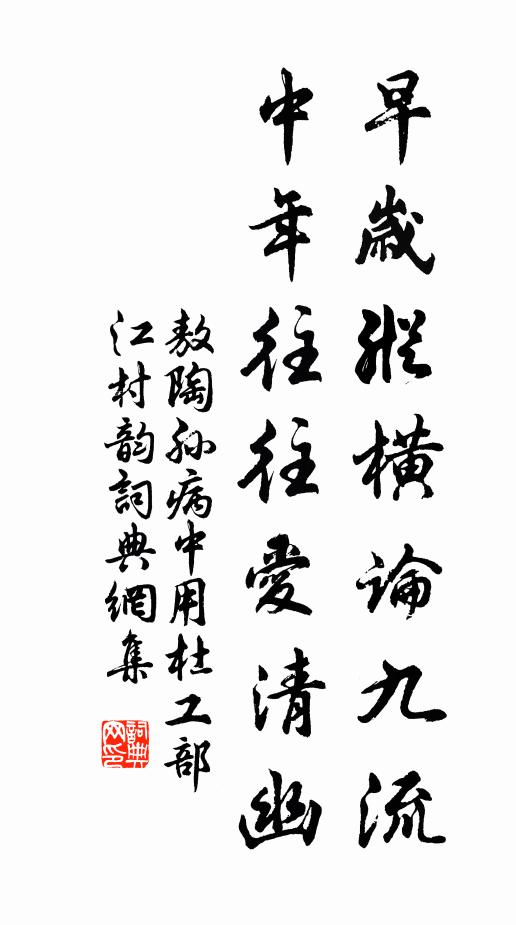 早歲縱橫論九流
中年往往愛清幽
敖陶孫病中用杜工部
江村韵詞典網集
詞典
网印